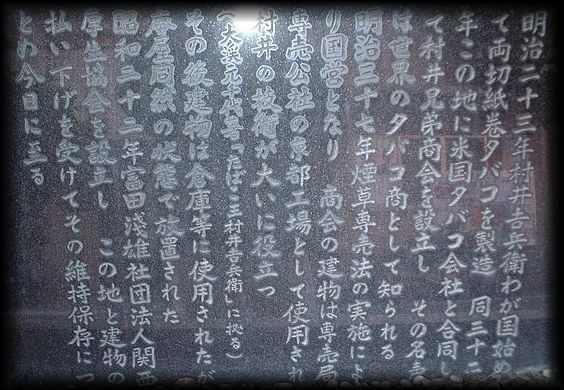 明治二十三年村井吉兵衛わが国始の
て両切紙巻タバコを製造　同三十二
年この地に米国タバコ会社と合同し
て村井兄弟商会を設立し　その名声
は世界のタバコ商として知られる
明治三十七年煙草専売法の実施によ
り国営となり　商会の建物は専売局
専売公社の京都工場として使用され
村井の技術が大いに役立つ
（大渓元千代著「たばこ王村井吉兵衛」に拠る）
その後建物は倉庫等に使用されたが
廃屋同然の状態で放置された
昭和三十二年富田浅雄社団法人関西
厚生協会を設立し　この地と建物の
払い下げを受けてその維持保存につ
とめ今日に至る